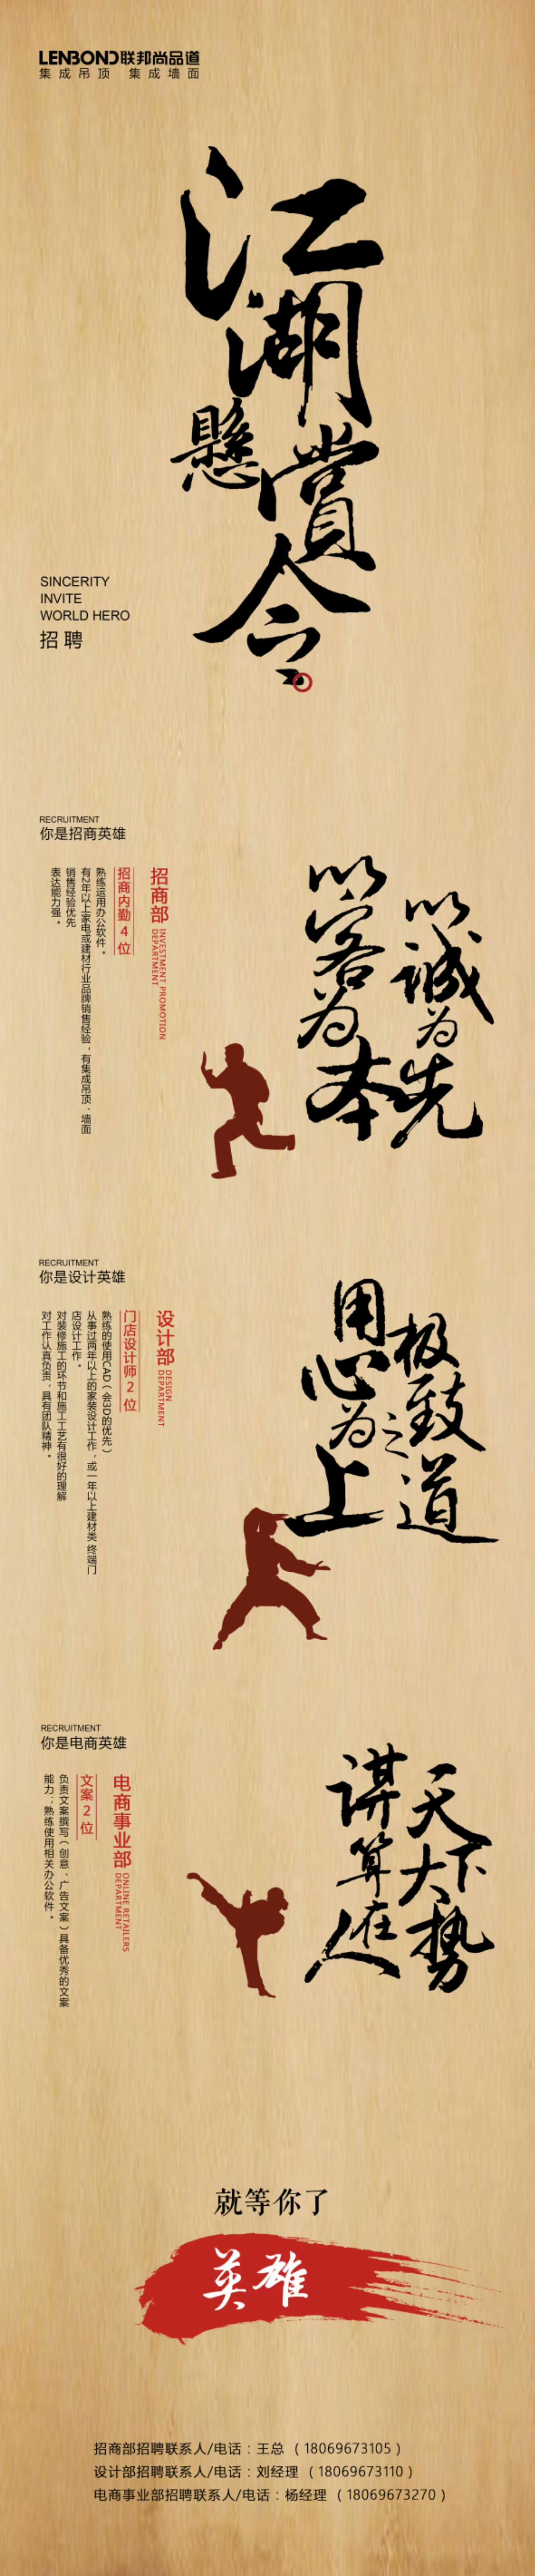 LENBOND联邦尚品道
集成吊顶 集成墙面
江湖
懸賞令
SINCERITY
INVITE
WORLD HERO
招聘
RECRUITMENT
你是招商英雄
以诚为先
以客为本
招商部
INVESTMENT PROMOTION
DEPARTMENT
招商内勤4位
熟练运用办公软件。
有2年以上家电或建材行业品牌销售经验，有集成吊顶、墙面
销售经验优先
表达能力强。
RECRUITMENT
你是设计英雄
极致之道
用心为上
设计部
DESIGN
DEPARTMENT
门店设计师2位
熟练的使用CAD（会3D的优先）
从事过两年以上的家装设计工作，或一年以上建材类 终端门
店设计工作。
对装修施工的环节和施工工艺有很好的理解
对工作认真负责，具有团队精神。
RECRUITMENT
你是电商英雄
天下大势
谋算在人
电商事业部
ONLINE RETAILERS
DEPARTMENT
文案2位
负责文案撰写（创意、广告文案）具备优秀的文案
能力；熟练使用相关办公软件。
就等你了
英雄
招商部招聘联系人/电话：王总（18069673105）
设计部招聘联系人/电话：刘经理（18069673110）
电商事业部招聘联系人/电话：杨经理（18069673270）